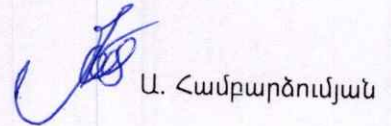 Ա. Համբարձումյան